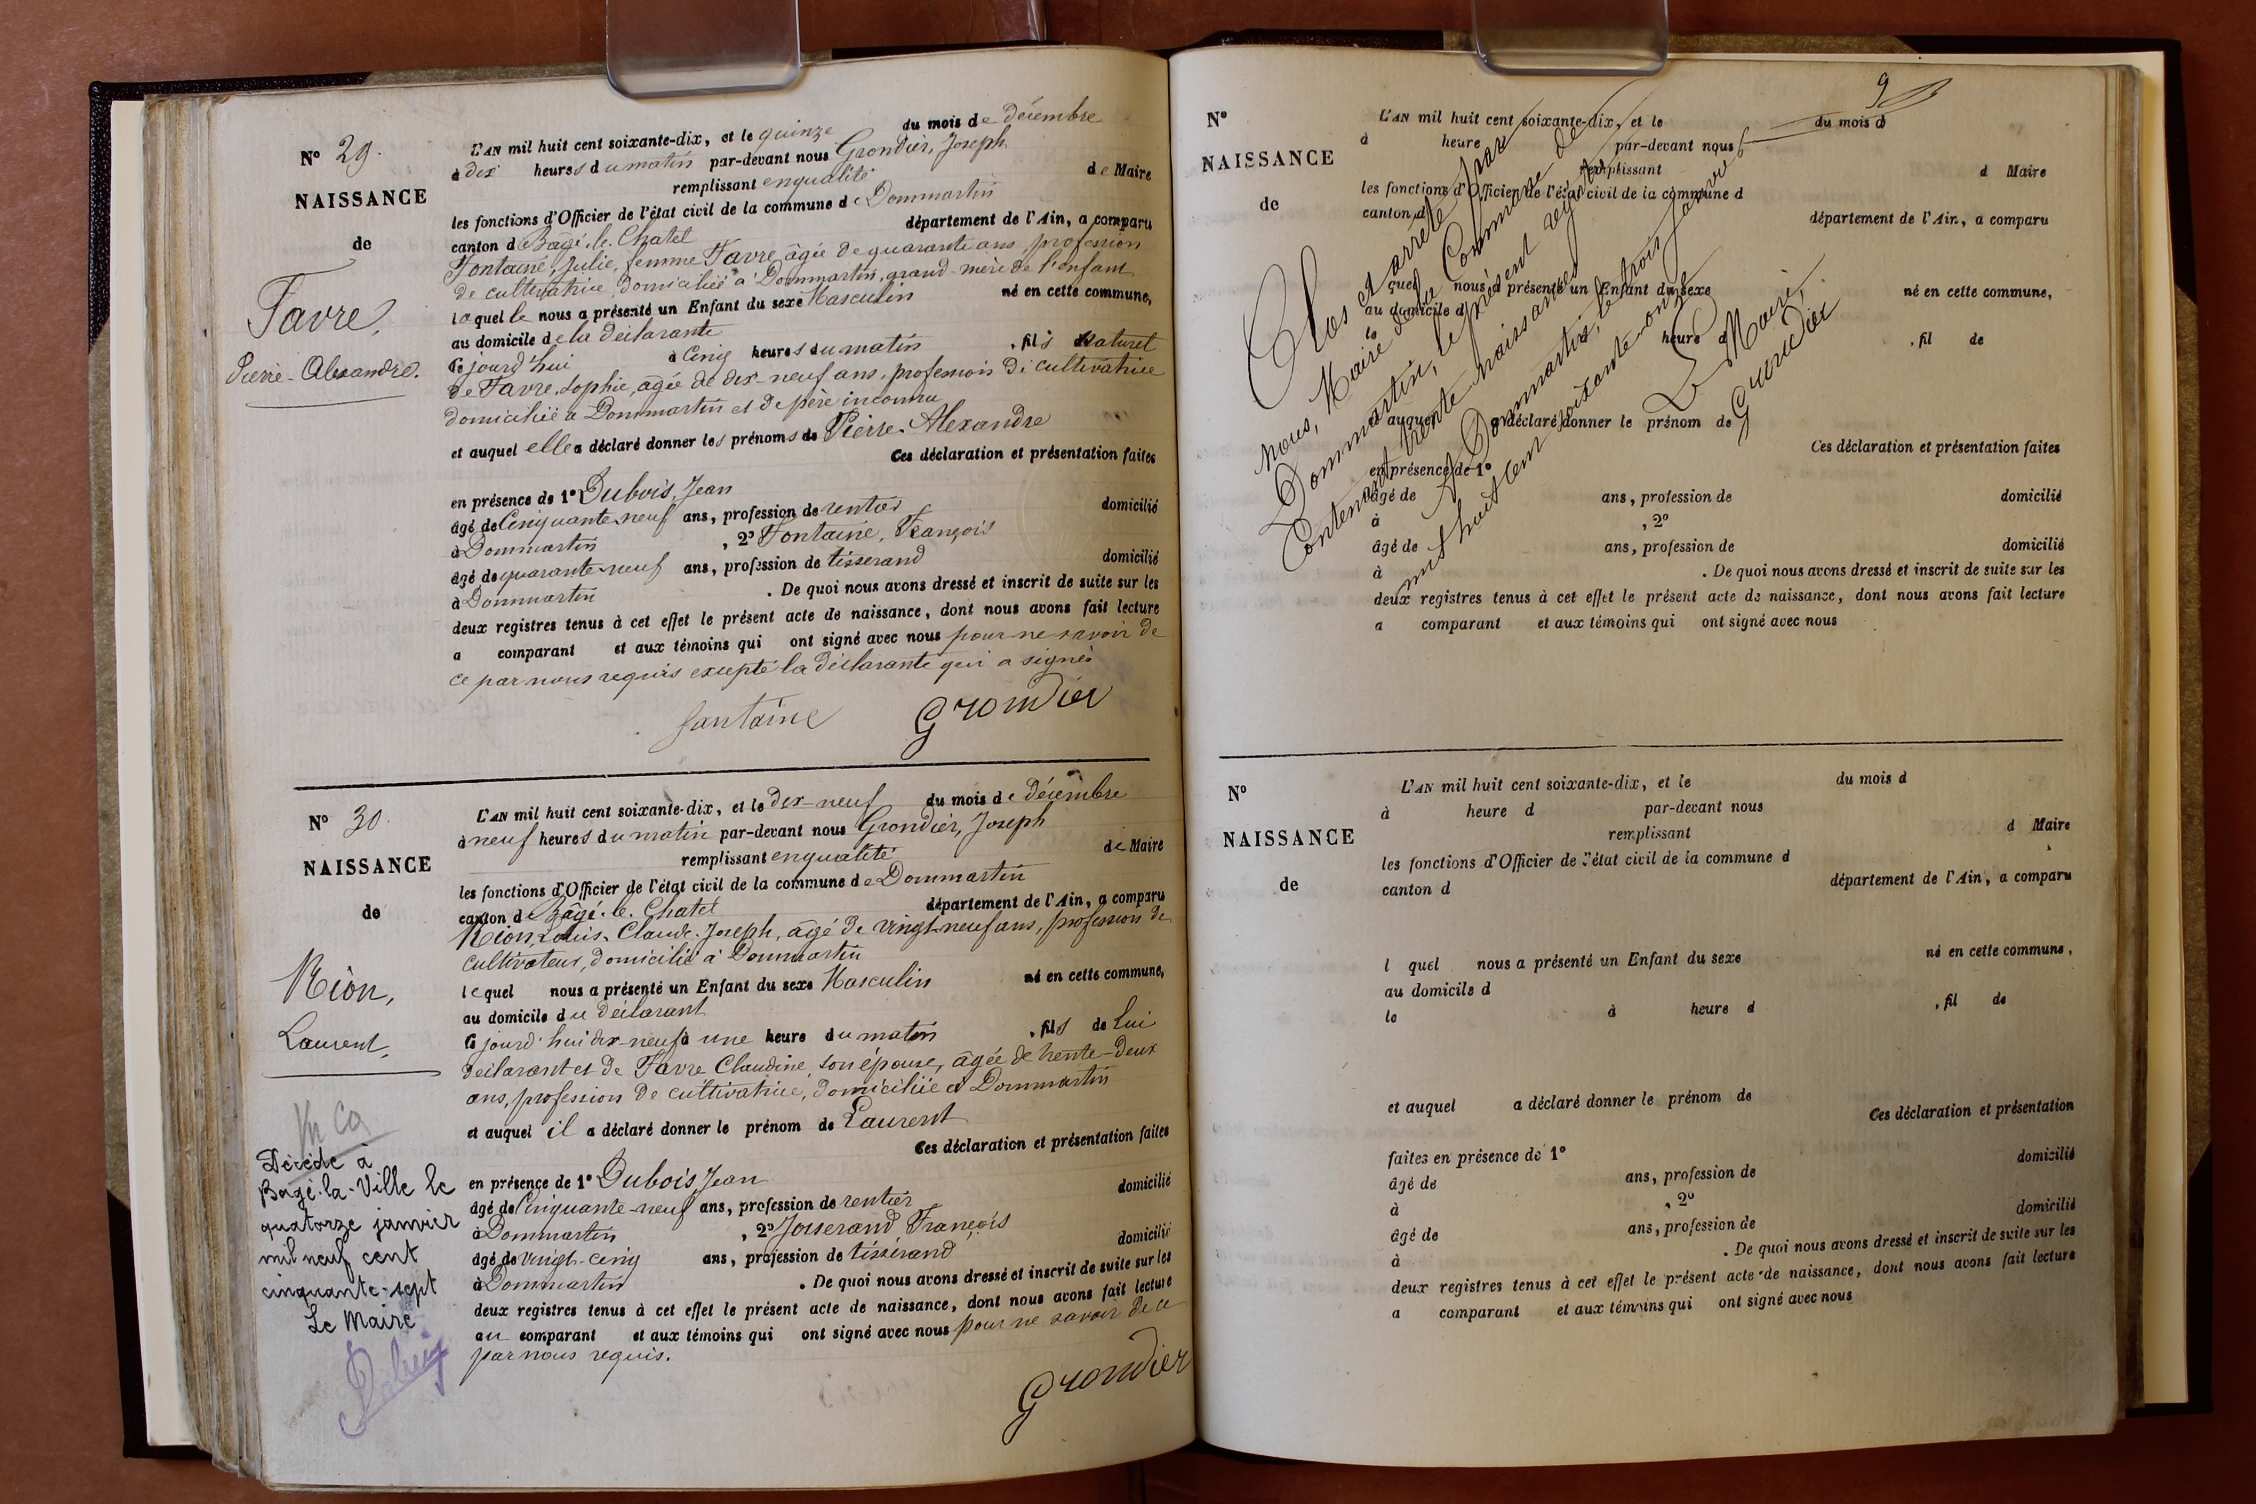 N° 29.
NAISSANCE
de
Favre,
Pierre-Alexandre.
L'AN mil huit cent soixante-dix, et le quinze du mois de décembre
à dix heures du matin par-devant nous Grondier, Joseph
remplissant en qualité de Maire
les fonctions d'Officier de l'état civil de la commune de Dommartin
canton de Bâgé-le-Chatel département de l'Ain, a comparu
Fontaine, Julie, femme Favre, âgée de quarante ans, profession
de cultivatrice, domiciliée à Dommartin, grand-mère de l'enfant
laquelle nous a présenté un Enfant du sexe Masculin né en cette commune,
au domicile de la déclarante
Ce jourd'hui à Cinq heures du matin , fils Naturel
de Favre, Sophie, agée de dix-neuf ans, profession de cultivatrice
domiciliée à Dommartin et de père inconnu
et auquel elle a déclaré donner les prénoms de Pierre-Alexandre
Ces déclaration et présentation faites
en présence de 1° Dubois, Jean
âgé de Cinquante-neuf ans, profession de rentier domicilié
à Dommartin , 2° Fontaine, François
âgé de quarante-neuf ans, profession de tisserand domicilié
à Dommartin . De quoi nous avons dressé et inscrit de suite sur les
deux registres tenus à cet effet le présent acte de naissance, dont nous avons fait lecture
a comparant et aux témoins qui ont signé avec nous pour ne savoir de
ce par nous requis excepté la déclarante qui a signé
fantaine Grondier
N° 30.
NAISSANCE
de
Rion,
Laurent,
Décédé à
Bagé-la-Ville le
quatorze janvier
mil neuf cent
cinquante-sept
Le Maire
L'AN mil huit cent soixante-dix, et le dix-neuf du mois de décembre
à neuf heures du matin par-devant nous Grondier, Joseph
remplissant en qualité de Maire
les fonctions d'Officier de l'état civil de la commune de Dommartin
canton de Bâgé-le-Chatel département de l'Ain, a comparu
Rion, Louis-Claude-Joseph, âgé de vingt-neuf ans, profession de
cultivateur, domicilié à Dommartin
lequel nous a présenté un Enfant du sexe Masculin né en cette commune,
au domicile du déclarant
Ce jourd'hui dix-neuf à une heure du matin , fils de Lui
déclarant et de Favre Claudine, son épouse, âgée de trente-deux
ans, profession de cultivatrice, domiciliée à Dommartin
et auquel il a déclaré donner le prénom de Laurent
Ces déclaration et présentation faites
en présence de 1° Dubois Jean
âgé de Cinquante-neuf ans, profession de rentier domicilié
à Dommartin , 2° Josserand François
âgé de vingt-cinq ans, profession de tisserand domicilié
à Dommartin . De quoi nous avons dressé et inscrit de suite sur les
deux registres tenus à cet effet le présent acte de naissance, dont nous avons fait lecture
au comparant et aux témoins qui ont signé avec nous pour ne savoir de ce
par nous requis.
Grondier
9
N°
NAISSANCE
de
L'AN mil huit cent soixante-dix, et le du mois d
à heure par-devant nous
remplissant d Maire
les fonctions d'Officier de l'état civil de la commune d
canton d département de l'Ain, a comparu
quel nous a présenté un Enfant du sexe né en cette commune,
au domicile d
le heure d , fil de
et auquel a déclaré donner le prénom de
Ces déclaration et présentation faites
en présence de 1°
âgé de ans, profession de domicilié
à , 2°
âgé de ans, profession de domicilié
à . De quoi nous avons dressé et inscrit de suite sur les
deux registres tenus à cet effet le présent acte de naissance, dont nous avons fait lecture
a comparant et aux témoins qui ont signé avec nous
Clos et arrêté par
nous, Maire de la Commune de
Dommartin, le présent registre
Contenant trente naissances
A Dommartin, le trois janvier
mil huit cent soixante-onze
Le Maire,
Grondier
N°
NAISSANCE
de
L'AN mil huit cent soixante-dix, et le du mois d
à heure d par-devant nous
remplissant d Maire
les fonctions d'Officier de l'état civil de la commune d
canton d département de l'Ain, a comparu
l quel nous a présenté un Enfant du sexe né en cette commune,
au domicile d
le à heure d , fil de
et auquel a déclaré donner le prénom de
Ces déclaration et présentation
faites en présence de 1°
âgé de ans, profession de domicilié
à , 2°
âgé de ans, profession de domicilié
à . De quoi nous avons dressé et inscrit de suite sur les
deux registres tenus à cet effet le présent acte de naissance, dont nous avons fait lecture
a comparant et aux témoins qui ont signé avec nous